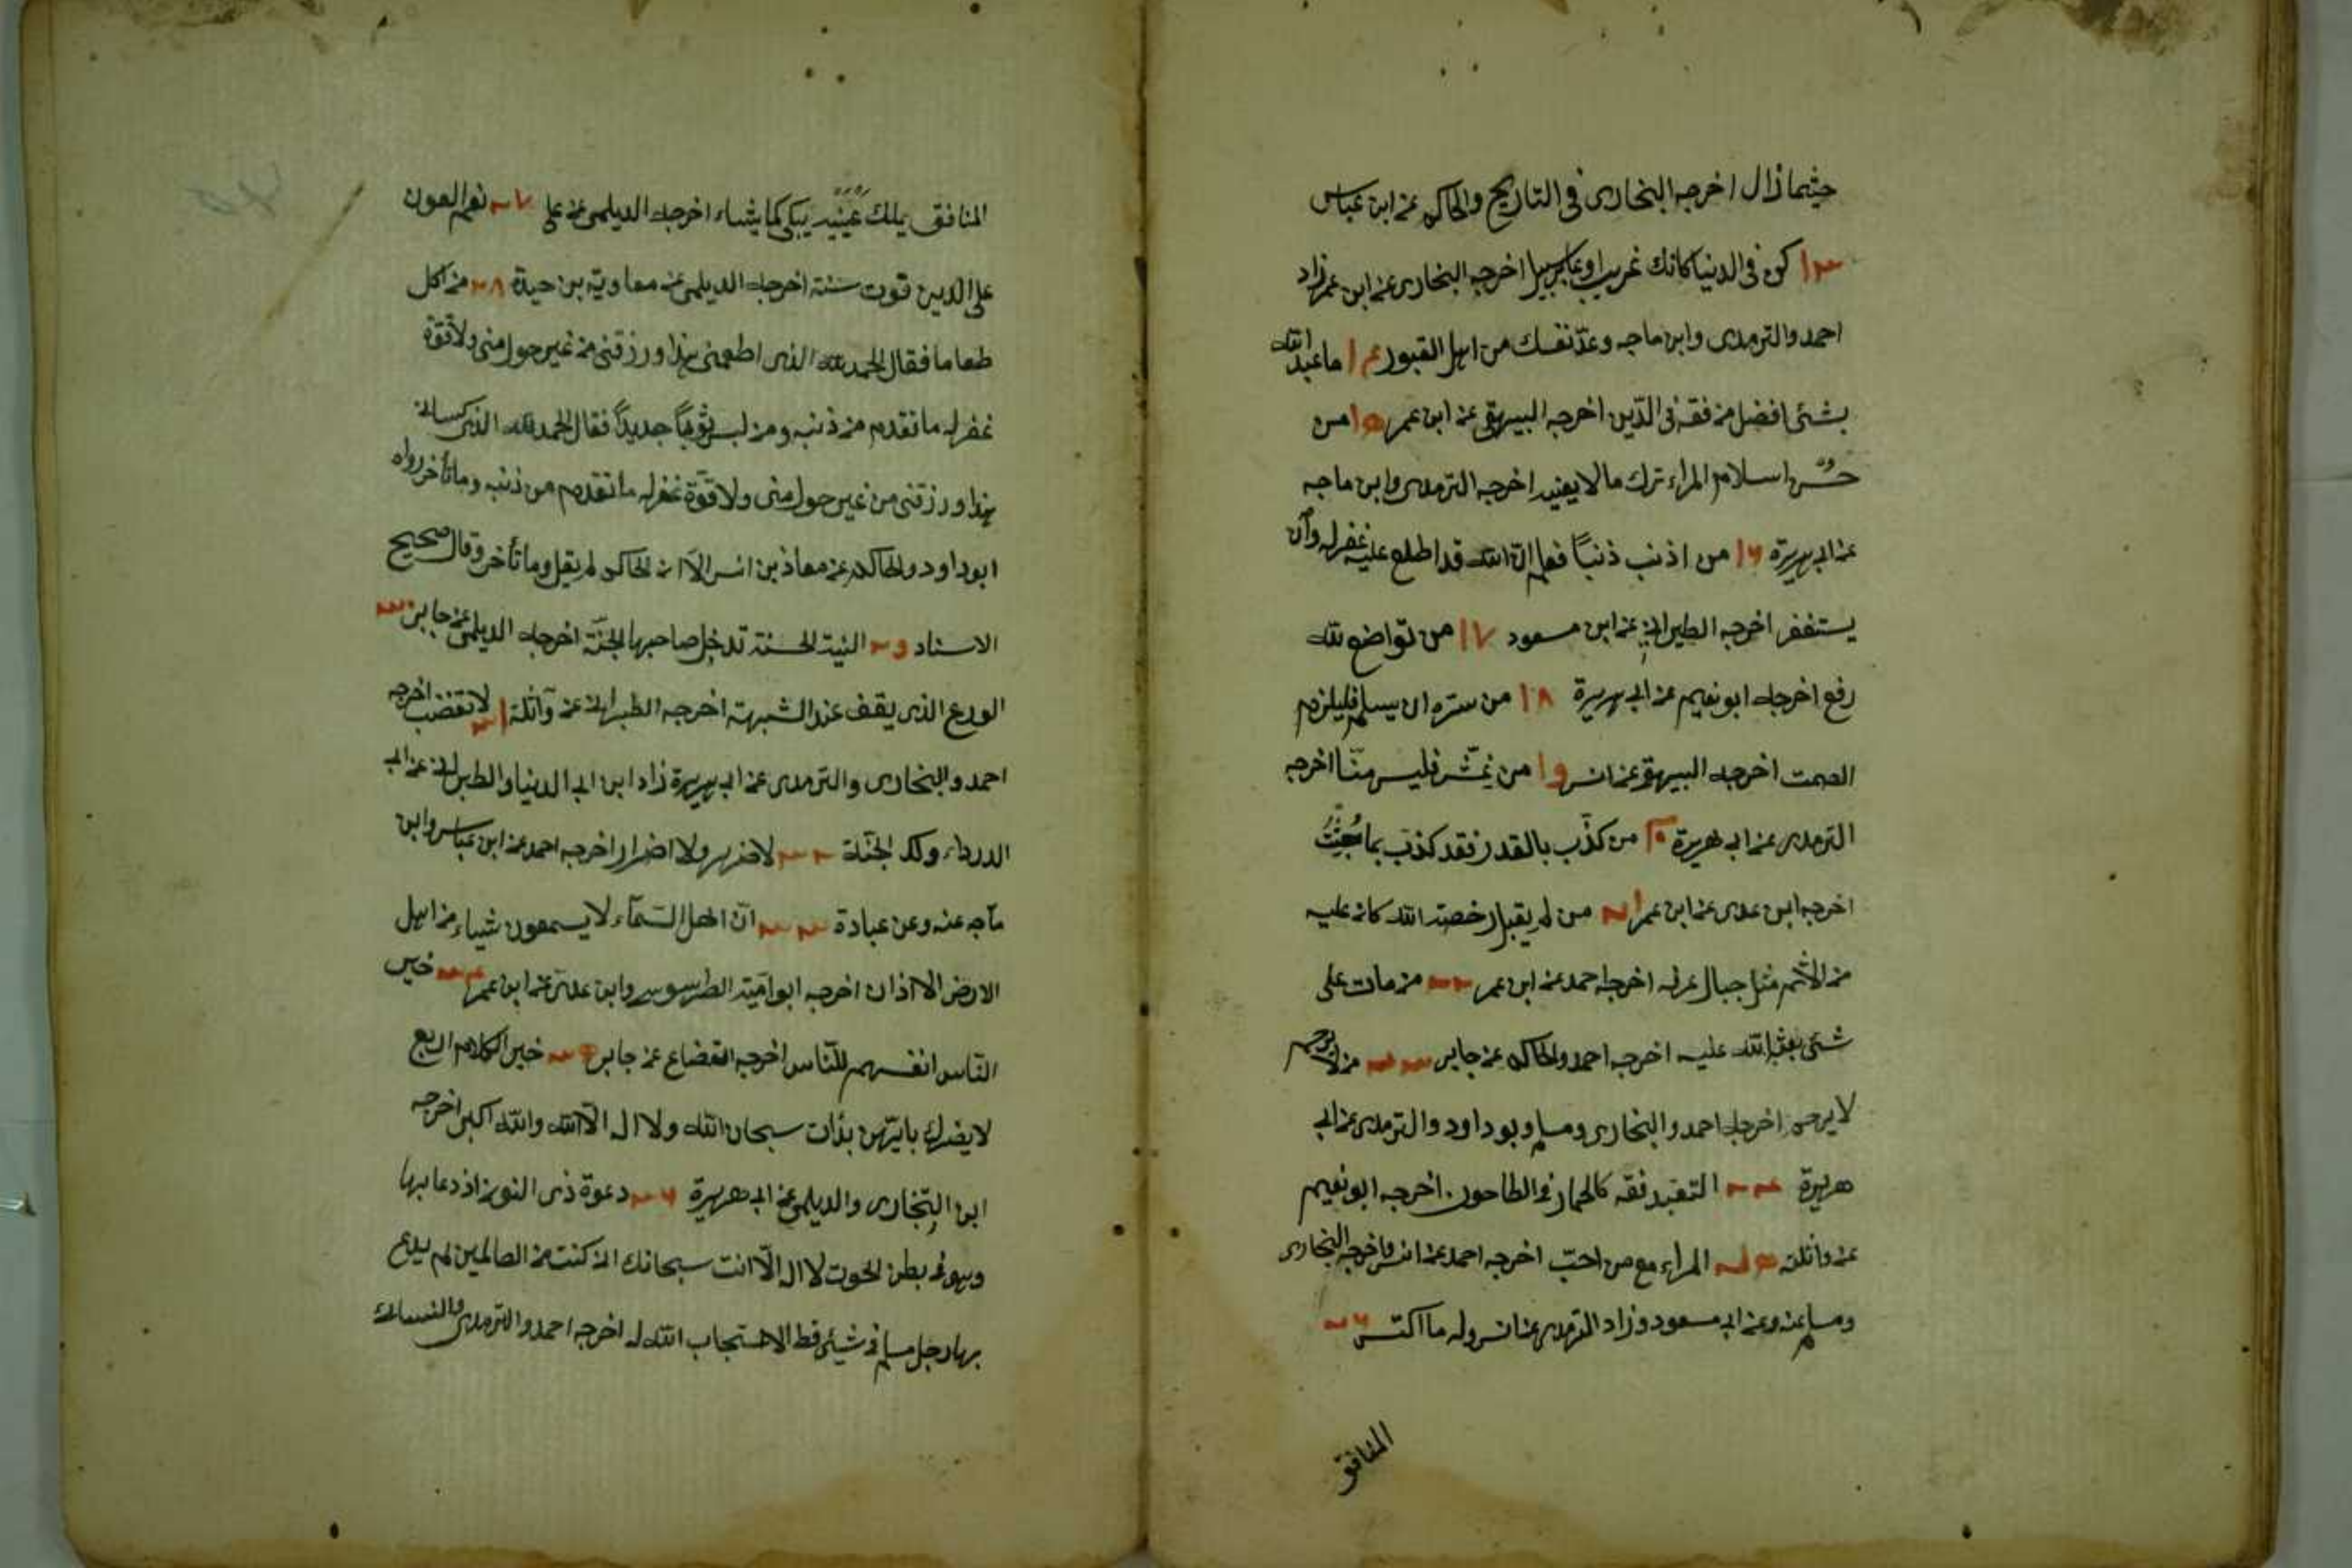 حيثما زال اخرجه البخارى فى التاريخ والحاكم عن ابن عباس
١٣ كن فى الدنيا كانك غريب او عابر سبيل اخرجه البخارى عن ابن عمر زاد
احمد والترمذى وابن ماجه وعدّ نفسك من اهل القبور ١٤ ما عبد الله
بشئ افضل من فقه فى الدّين اخرجه البيهقى عن ابن عمر ١٥ من
حسن اسلام المراء ترك ما لا يعنيه اخرجه الترمذى وابن ماجه
عن ابى هريرة ١٦ من اذنب ذنباً فعلم انّ الله قد اطلع عليه غفر له وان
يستغفر اخرجه الطبرانى عن ابن مسعود ١٧ من تواضع لله
رفع اخرجه ابو نعيم عن ابى هريرة ١٨ من سرّه ان يسلم فليلزم
الصمت اخرجه البيهقى عن انس ١٩ من غشّ فليس منّا اخرجه
الترمذى عن ابى هريرة ٢٠ من كذّب بالقدر فقد كذّب بما جئتُ
اخرجه ابن عدى عن ابن عمر ٢١ من لم يقبل رخصة الله كان عليه
من الاثم مثل جبال عرفه اخرجه احمد عن ابن عمر ٢٢ من مات على
شئى بعثه الله عليه اخرجه احمد والحاكم عن جابر ٢٣ من لا يرحم
لا يرحم اخرجه احمد والبخارى ومسلم وبوداود والترمذى عن ابى
هريرة ٢٤ المتعبد فقه كالحمار فى الطاحون اخرجه ابو نعيم
عن واثلة ٢٥ المراء مع من احبّ اخرجه احمد عن انس واخرجه البخارى
ومسلم عنه وعن ابى مسعود وزاد الترمذى عن انس وله ما اكتسب ٢٦
المنافق
المنافق يملك عينيه يبكى كما يشاء اخرجه الديلمى عن على ٢٧ نعم العون
على الدين قوت سنة اخرجه الديلمى عن معاوية بن حيدة ٢٨ من اكل
طعاما فقال الحمد لله الذى اطعمنى هذا ورزقنى من غير حول منى ولا قوّة
غفر له ما تقدم من ذنبه ومن لبس ثوباً جديداً فقال الحمد لله الذى كسانى
هذا ورزقنى من غير حول منى ولا قوّة غفر له ما تقدم من ذنبه وما تأخر رواه
ابوداود والحاكم عن معاذ بن انس الاّ ان الحاكم لم يقل وما تأخر وقال صحيح
الاسناد ٢٩ النية الحسنة تدخل صاحبها الجنّة اخرجه الديلمى عن جابر ٣٠
الورع الذى يقف عند الشبهة اخرجه الطبرانى عن واثلة ٣١ لا تغضب اخرجه
احمد والبخارى والترمذى عن ابى هريرة زاد ابن ابى الدنيا والطبرانى عن ابى
الدرداء ولك الجنّة ٣٢ لا ضرر ولا اضرار اخرجه احمد عن ابن عباس وابن
ماجه عنه وعن عبادة ٣٣ انّ اهل السّمآء لا يسمعون شياء من اهل
الارض الا اذان اخرجه ابو اميّة الطرسوسى وابن عدىّ عن ابن عمر ٣٤ خير
النّاس انفسهم للنّاس اخرجه القضاع عن جابر ٣٥ خير الكلام اربع
لا يضرك بايّهن بدأت سبحان الله ولا اله الاّ الله والله اكبر اخرجه
ابن النّجارى والديلمى عن ابى هريرة ٣٦ دعوة ذى النون اذ دعا بها
وهو فى بطن الحوت لا اله الاّ انت سبحانك انى كنت من الظالمين لم يدع
بها رجل مسلم فى شيئ قط الا استجاب الله له اخرجه احمد والترمذى والنسائى